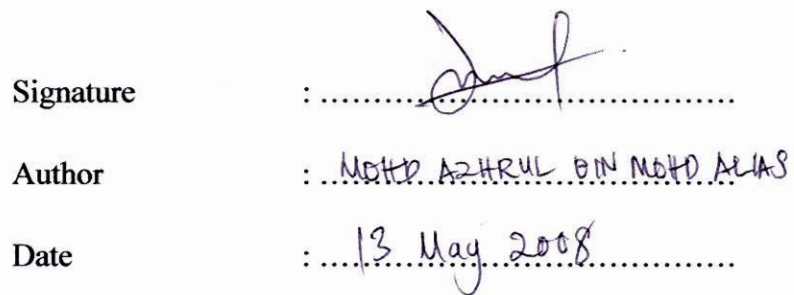 Signature : ....................................
Author : MOHD AZHRUL BIN MOHD ALIAS
Date : 13 May 2008